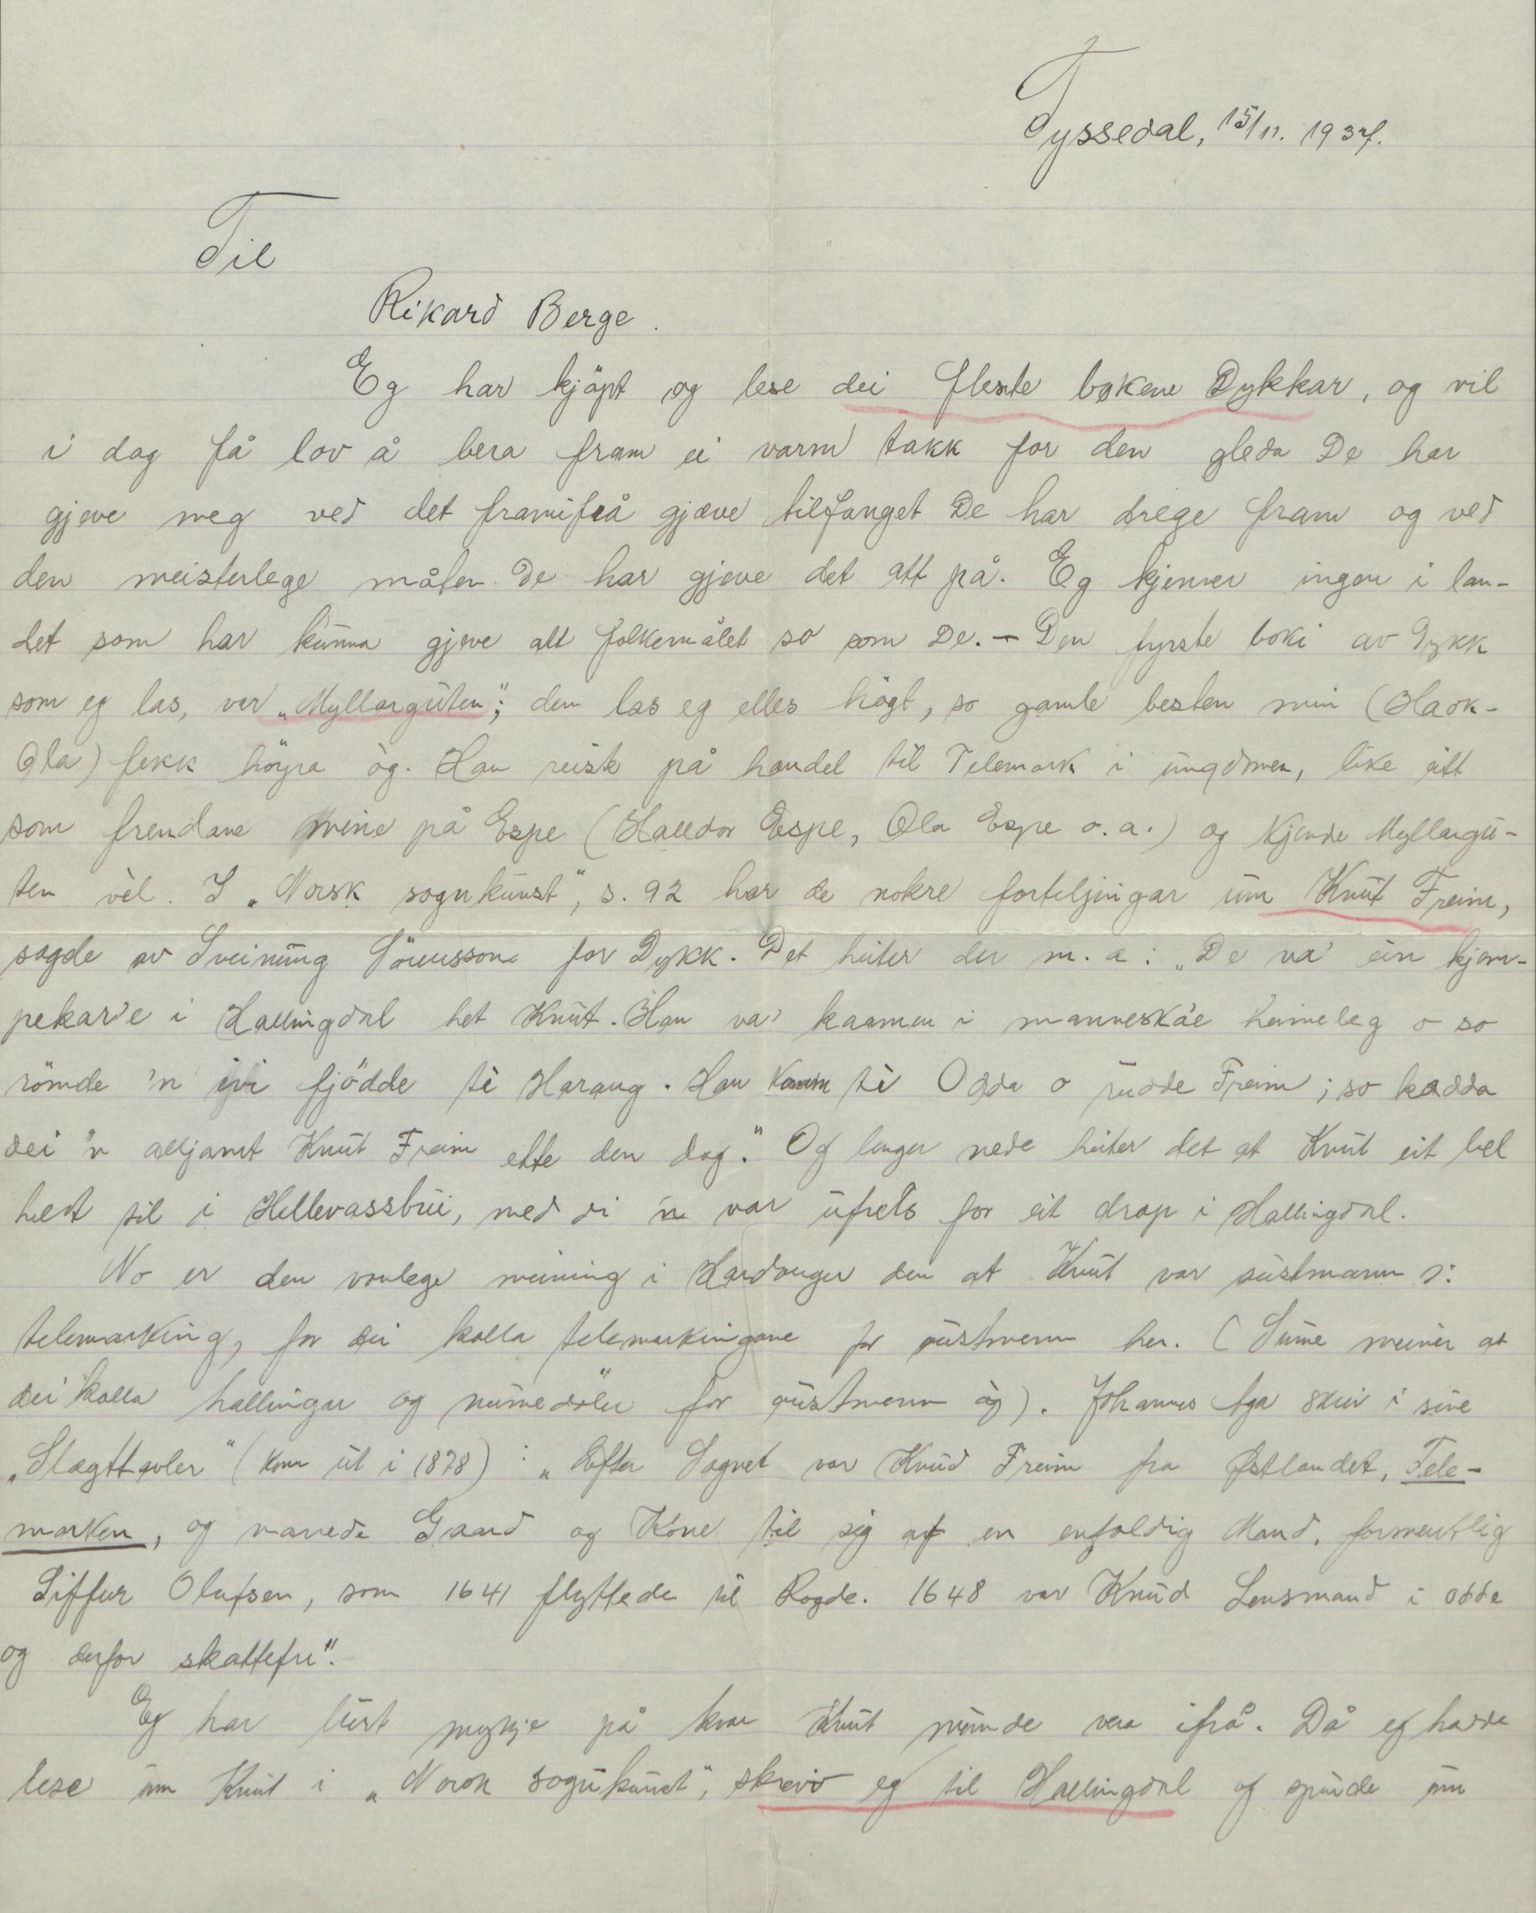 Tyssedal, 15/11. 1937.
Til
Rikard Berge.
Eg har kjöpt og lese dei fleste bøkene Dykkar, og vil
i dag få lov å bera fram ei varm takk for den gleda De har
gjeve meg ved det framifrå gjæve tilfanget De har drege fram og ved
den meisterlege måten De har gjeve det att på. Eg kjenner ingen i lan-
det som har kunna gjeve att folkemålet so som De. – Den fyrste boki av Dykk
som eg las, var „Myllarguten“; den las eg elles högt, so gamle besten min (Haok-
Ola) fekk höyra òg. Han reiste på handel til Telemark i ungdomen, like ått
som frendane mine på Espe (Halldor Espe, Ola Espe o.a.) og kjende Myllargu-
ten vèl. I „Norsk sogukunst“, s. 92 har de nokre forteljingar um Knut Freim,
sagde av Sveinung Sörensson for Dykk. Det heiter der m. a: „De va' ein kjem-
pekar'e i Hallingdal het Knut. Han va' kaamen i manneskåe heimeleg o so
römde 'n ivi fjödde tè Harang. Han kaam tè Odda o rudde Freim; so kadda
dei 'n alljamt Knut Freim ette den dag.“ Og lenger nede heiter det at Knut eit bel
heldt til i Hellevassbui, med di 'n var ufreds for eit drap i Hallingdal.
No er den vanlege meining i Hardanger den at Knut var austmann ɔ:
telemarking, for dei kalla telemarkingane for austmenn her. (Sume meiner at
dei kalla hallingar og numedöler for austmenn òg). Johannes Aga skriv i sine
„Slægttavler“ (kom ut i 1878): „Efter Sagnet var Knud Freim fra Østlandet, Tele-
marken, og narrede Gaard og Kone til sig af en enfoldig Mand, formentlig
Siffur Olafsen, som 1641 flyttede til Ragde. 1648 var Knud Lensmand i Odda
og derfor skattefri“.
Eg har lurt mykje på kvar Knut munde vera ifrå. Då eg hadde
lese um Knut i „Norsk sogukunst“, skreiv eg til Hallingdal og spurde um